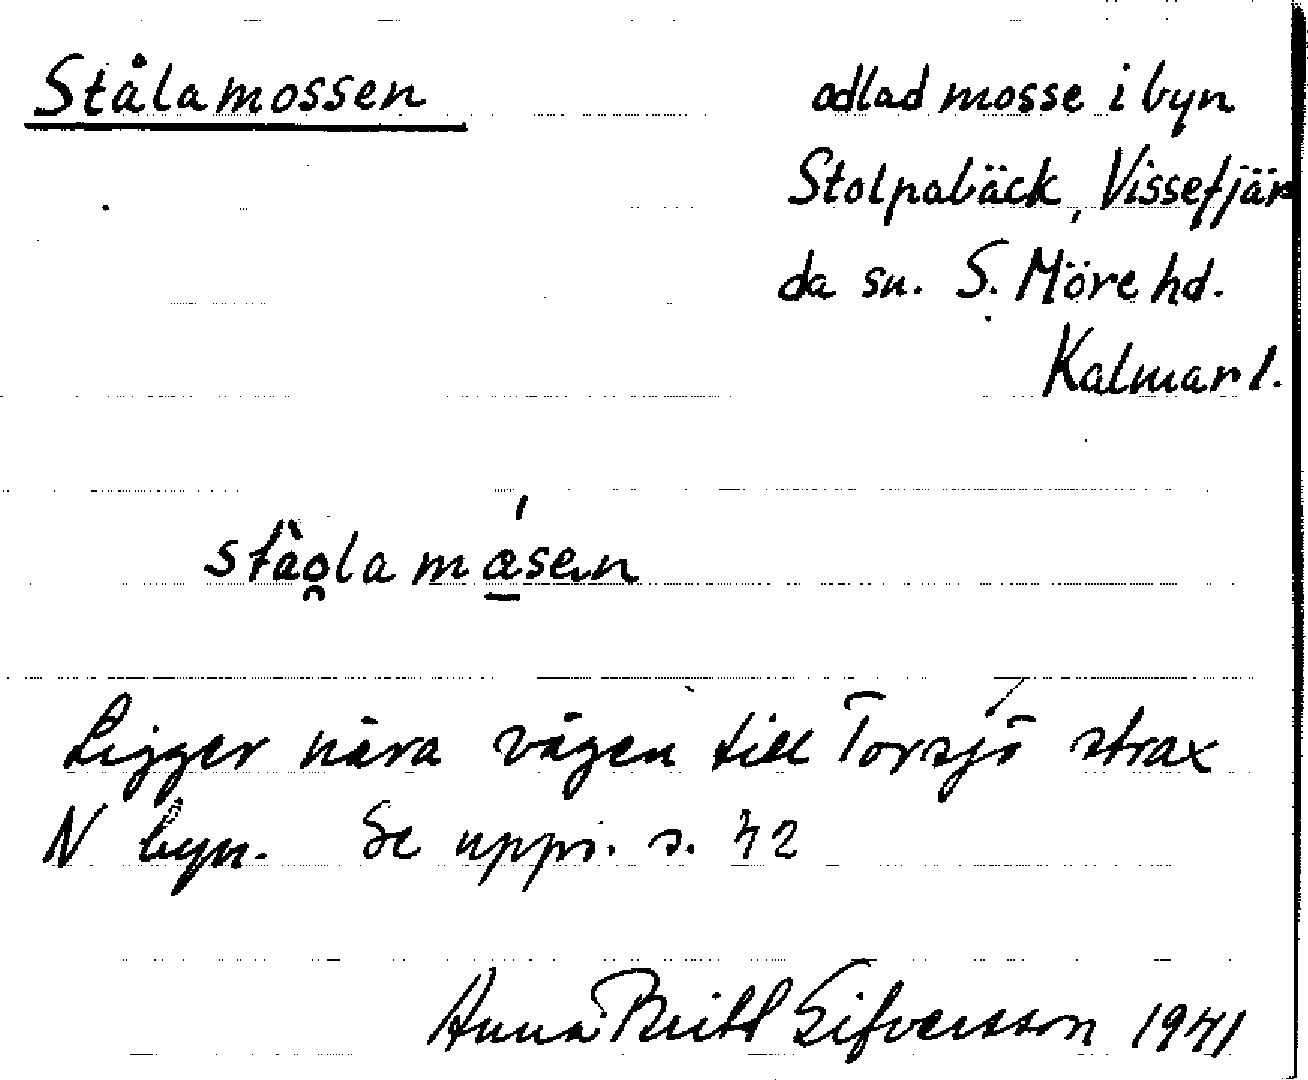 Stålamossen
odlad mosse i byn
Stolpabäck, Vissefjär
da sn. S. Möre hd.
Kalmar l.
stà̀o̯la måsen
Ligger nära vägen till Torsjö strax
N byn. Se upps. s. 42
Anna Britt Sifversson 1941